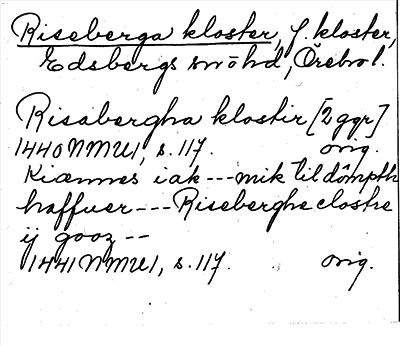 Riseberga kloster, f. kloster,
Edsbergs sn o hd, Örebro l.
Risabergha klostir [2 ggr]
1440 NMU1, s. 117. orig.
Kiænnes iak --- mik til dömpth
haffuer --- Riseberghe clostre
ij gooz --
1441 NMU1, s. 117. orig.